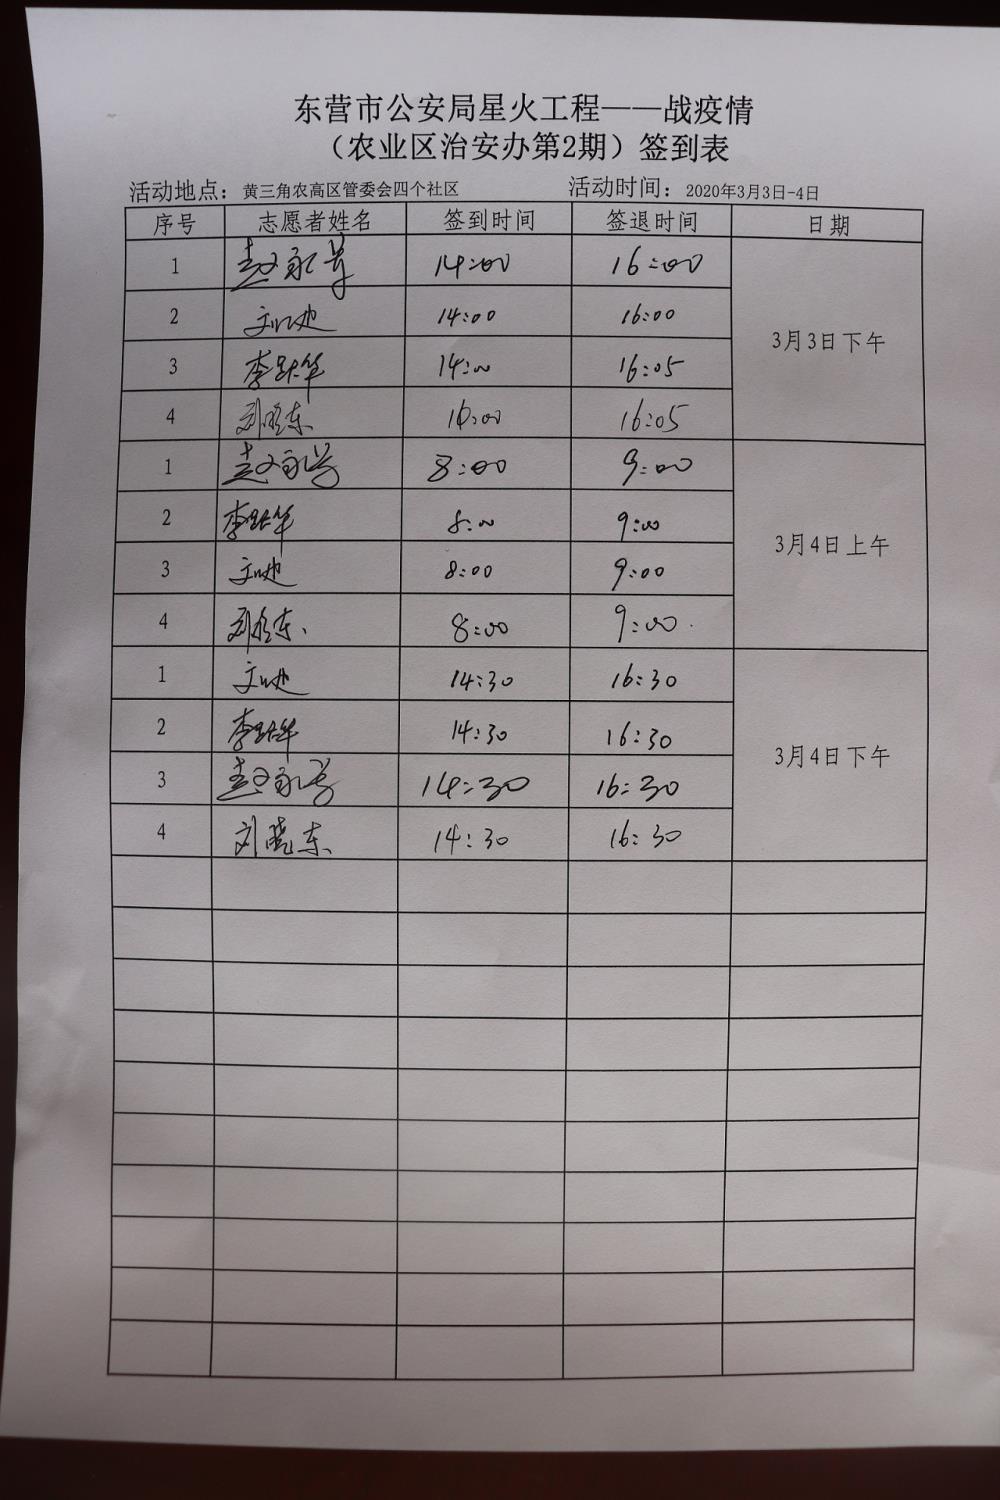 东营市公安局星火工程——战疫情
（农业区治安办第2期）签到表
活动地点：黄三角农高区管委会四个社区 活动时间：2020年3月3日-4日
序号 志愿者姓名 签到时间 签退时间 日期
1 14:00 16:00
2 14:00 16:00
3 李跃华 14:00 16:05
4 刘晓东 16:05
3月3日下午
1 8:00 9:00
2 李跃华 8:00 9:00
3 8:00 9:00
4 刘晓东 8:00 9:00
3月4日上午
1 14:30 16:30
2 李跃华 14:30 16:30
3 14:30 16:30
4 刘晓东 14:30 16:30
3月4日下午